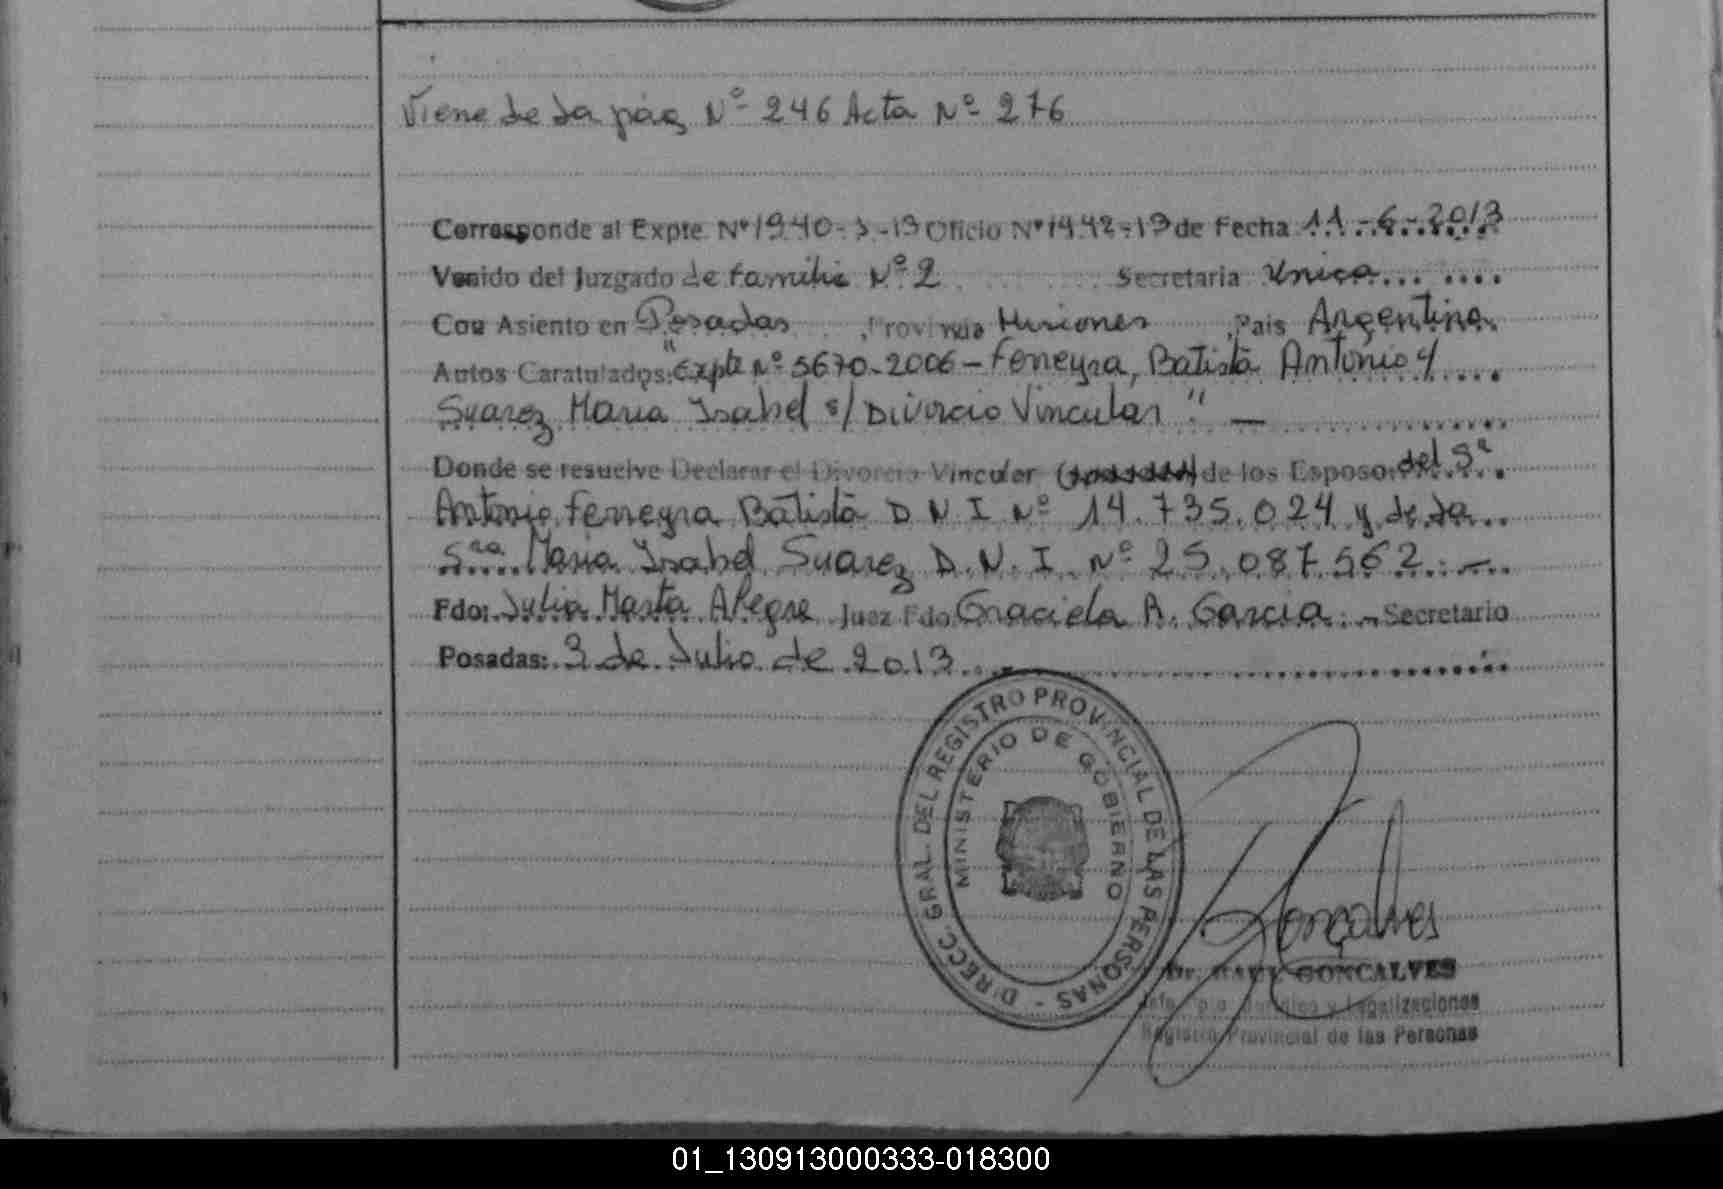 Viene de la pág Nº 246 Acta Nº 276
Corresponde al Expte. Nº 1940-J-13 Oficio Nº 1442-13 de Fecha 11-6-2013
Venido del Juzgado de familia Nº 2 Secretaria Unica
Con Asiento en Posadas, Provincia Misiones, Pais Argentina
Autos Caratulados: "Expte Nº 5670-2006 - Ferreyra, Batista Antonio y
Suarez Maria Isabel s/ Divorcio Vincular". —
Donde se resuelve Declarar el Divorcio Vincular de los Esposos: del Sr
Antonio Ferreyra Batista D N I Nº 14.735.024 y de la
Sra Maria Isabel Suarez D.N.I. Nº 25.087.562.-
Fdo: Julia Marta Alegre Juez Fdo Graciela R. Garcia.- Secretario
Posadas: 3 de Julio de 2013
DIRECC. GRAL. DEL REGISTRO PROVINCIAL DE LAS PERSONAS -
MINISTERIO DE GOBIERNO
Goncalves
Dr. RAUL GONCALVES
Jurídico y Legalizaciones
Registro Provincial de las Personas
01_130913000333-018300